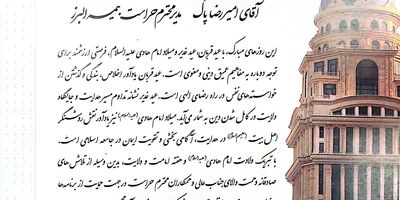 آقای امیررضا پاک  مدیر محترم حراست بیمه البرز
این روزهای مبارک، با عید قربان، عید غدیر و میلاد امام هادی علیه‌السلام، فرصتی ارزشمند برای
توجه دوباره به مفاهیم عمیق دینی و معنوی است. عید قربان یادآور اخلاص، بندگی و گذشتن از
خواسته‌های نفس در راه رضای الهی است. عید غدیر نشانه تداوم مسیر هدایت و جایگاه
ولایت در کامل شدن دین به شمار می‌آید. میلاد امام هادی (علیه‌السلام) نیز یادآور نقش روشنگر
اهل بیت (علیهم‌السلام) در هدایت، آگاهی بخشی و تقویت ایمان در جامعه اسلامی است.
با تبریک ولادت امام هادی (علیه‌السلام) و هفته امامت و ولایت، بدین وسیله از تلاش های
صادقانه و همت والای جناب عالی و همکاران محترم حراست در جهت حمایت از برنامه‌ها